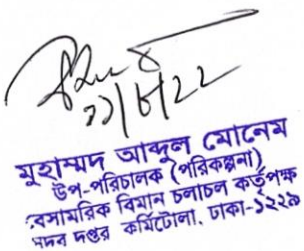 ২১/৮/২২
মুহাম্মদ আব্দুল মোনেম
উপ-পরিচালক (পরিকল্পনা)
বেসামরিক বিমান চলাচল কর্তৃপক্ষ
সদর দপ্তর কুর্মিটোলা, ঢাকা-১২২৯